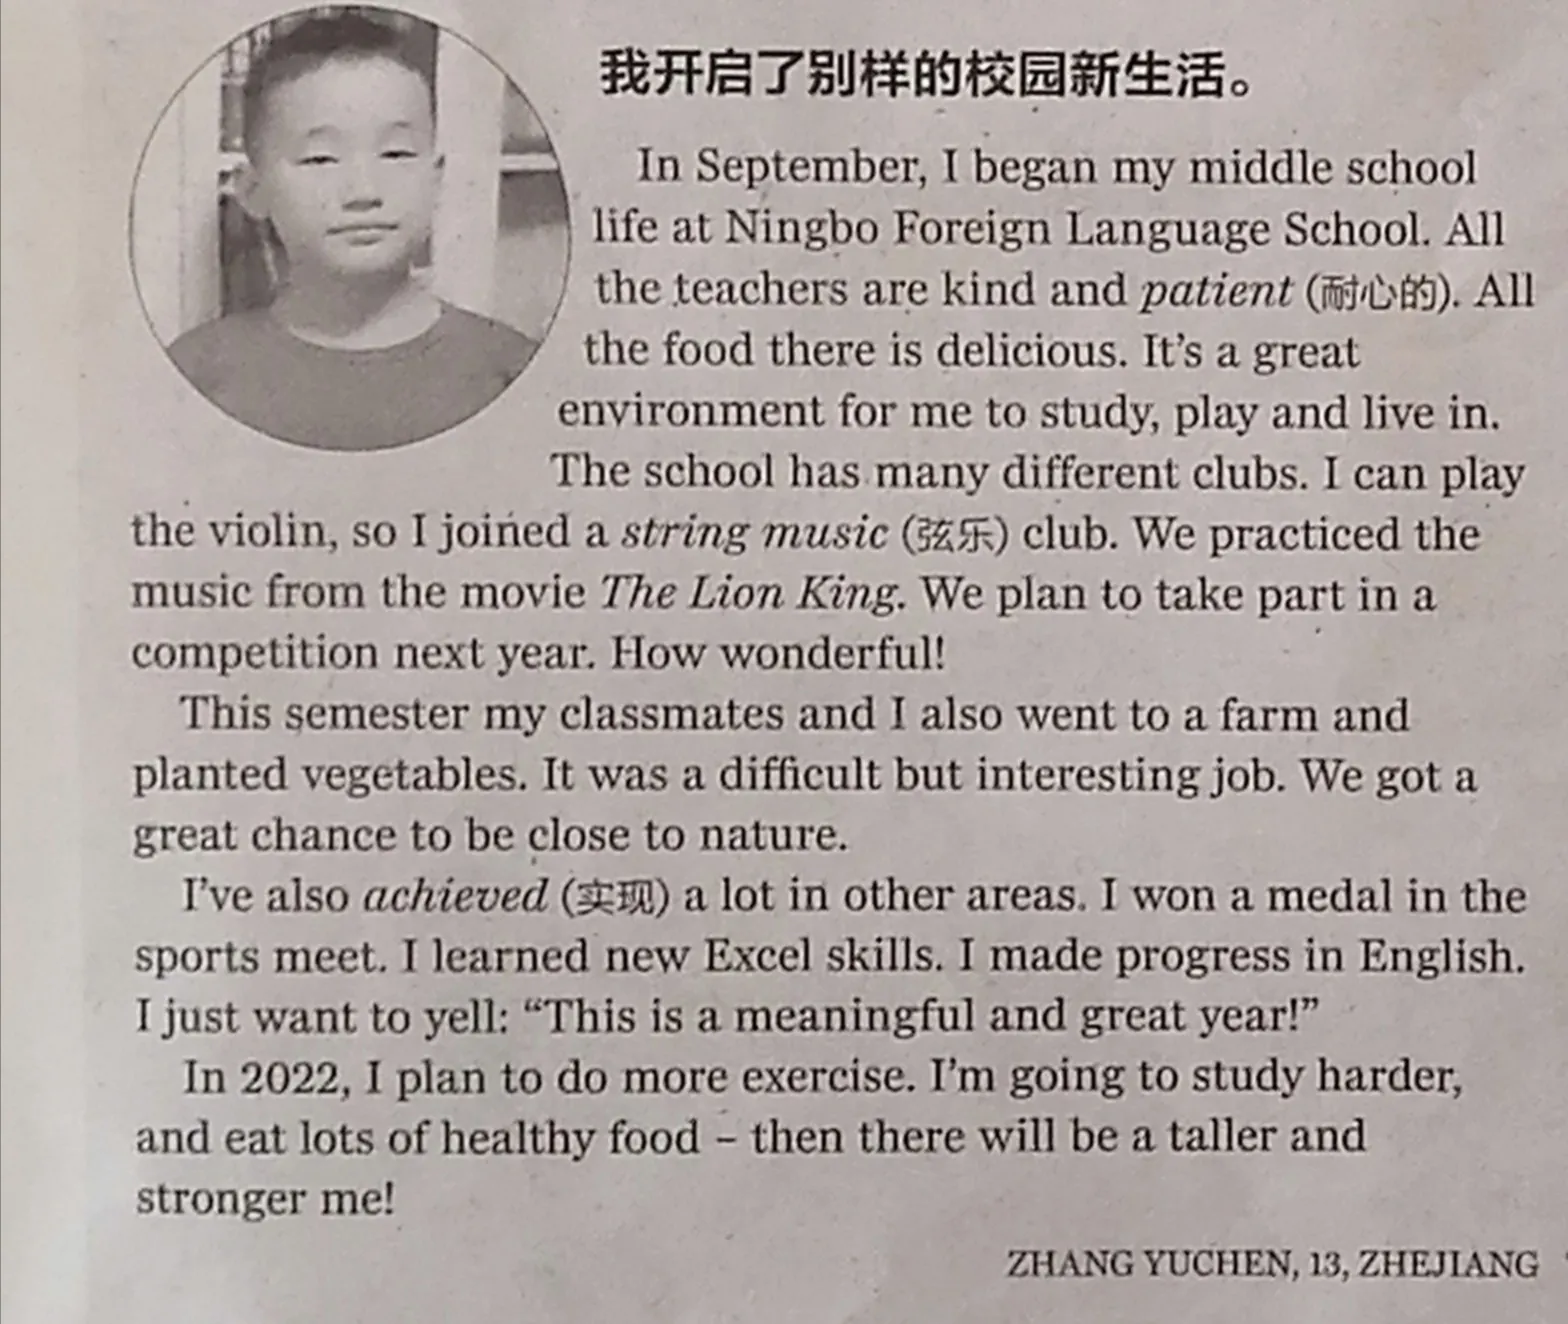 我开启了别样的校园新生活。
In September, I began my middle school
life at Ningbo Foreign Language School. All
the teachers are kind and patient (耐心的). All
the food there is delicious. It's a great
environment for me to study, play and live in.
The school has many different clubs. I can play
the violin, so I joined a string music (弦乐) club. We practiced the
music from the movie The Lion King. We plan to take part in a
competition next year. How wonderful!
This semester my classmates and I also went to a farm and
planted vegetables. It was a difficult but interesting job. We got a
great chance to be close to nature.
I've also achieved (实现) a lot in other areas. I won a medal in the
sports meet. I learned new Excel skills. I made progress in English.
I just want to yell: “This is a meaningful and great year!”
In 2022, I plan to do more exercise. I'm going to study harder,
and eat lots of healthy food – then there will be a taller and
stronger me!
ZHANG YUCHEN, 13, ZHEJIANG